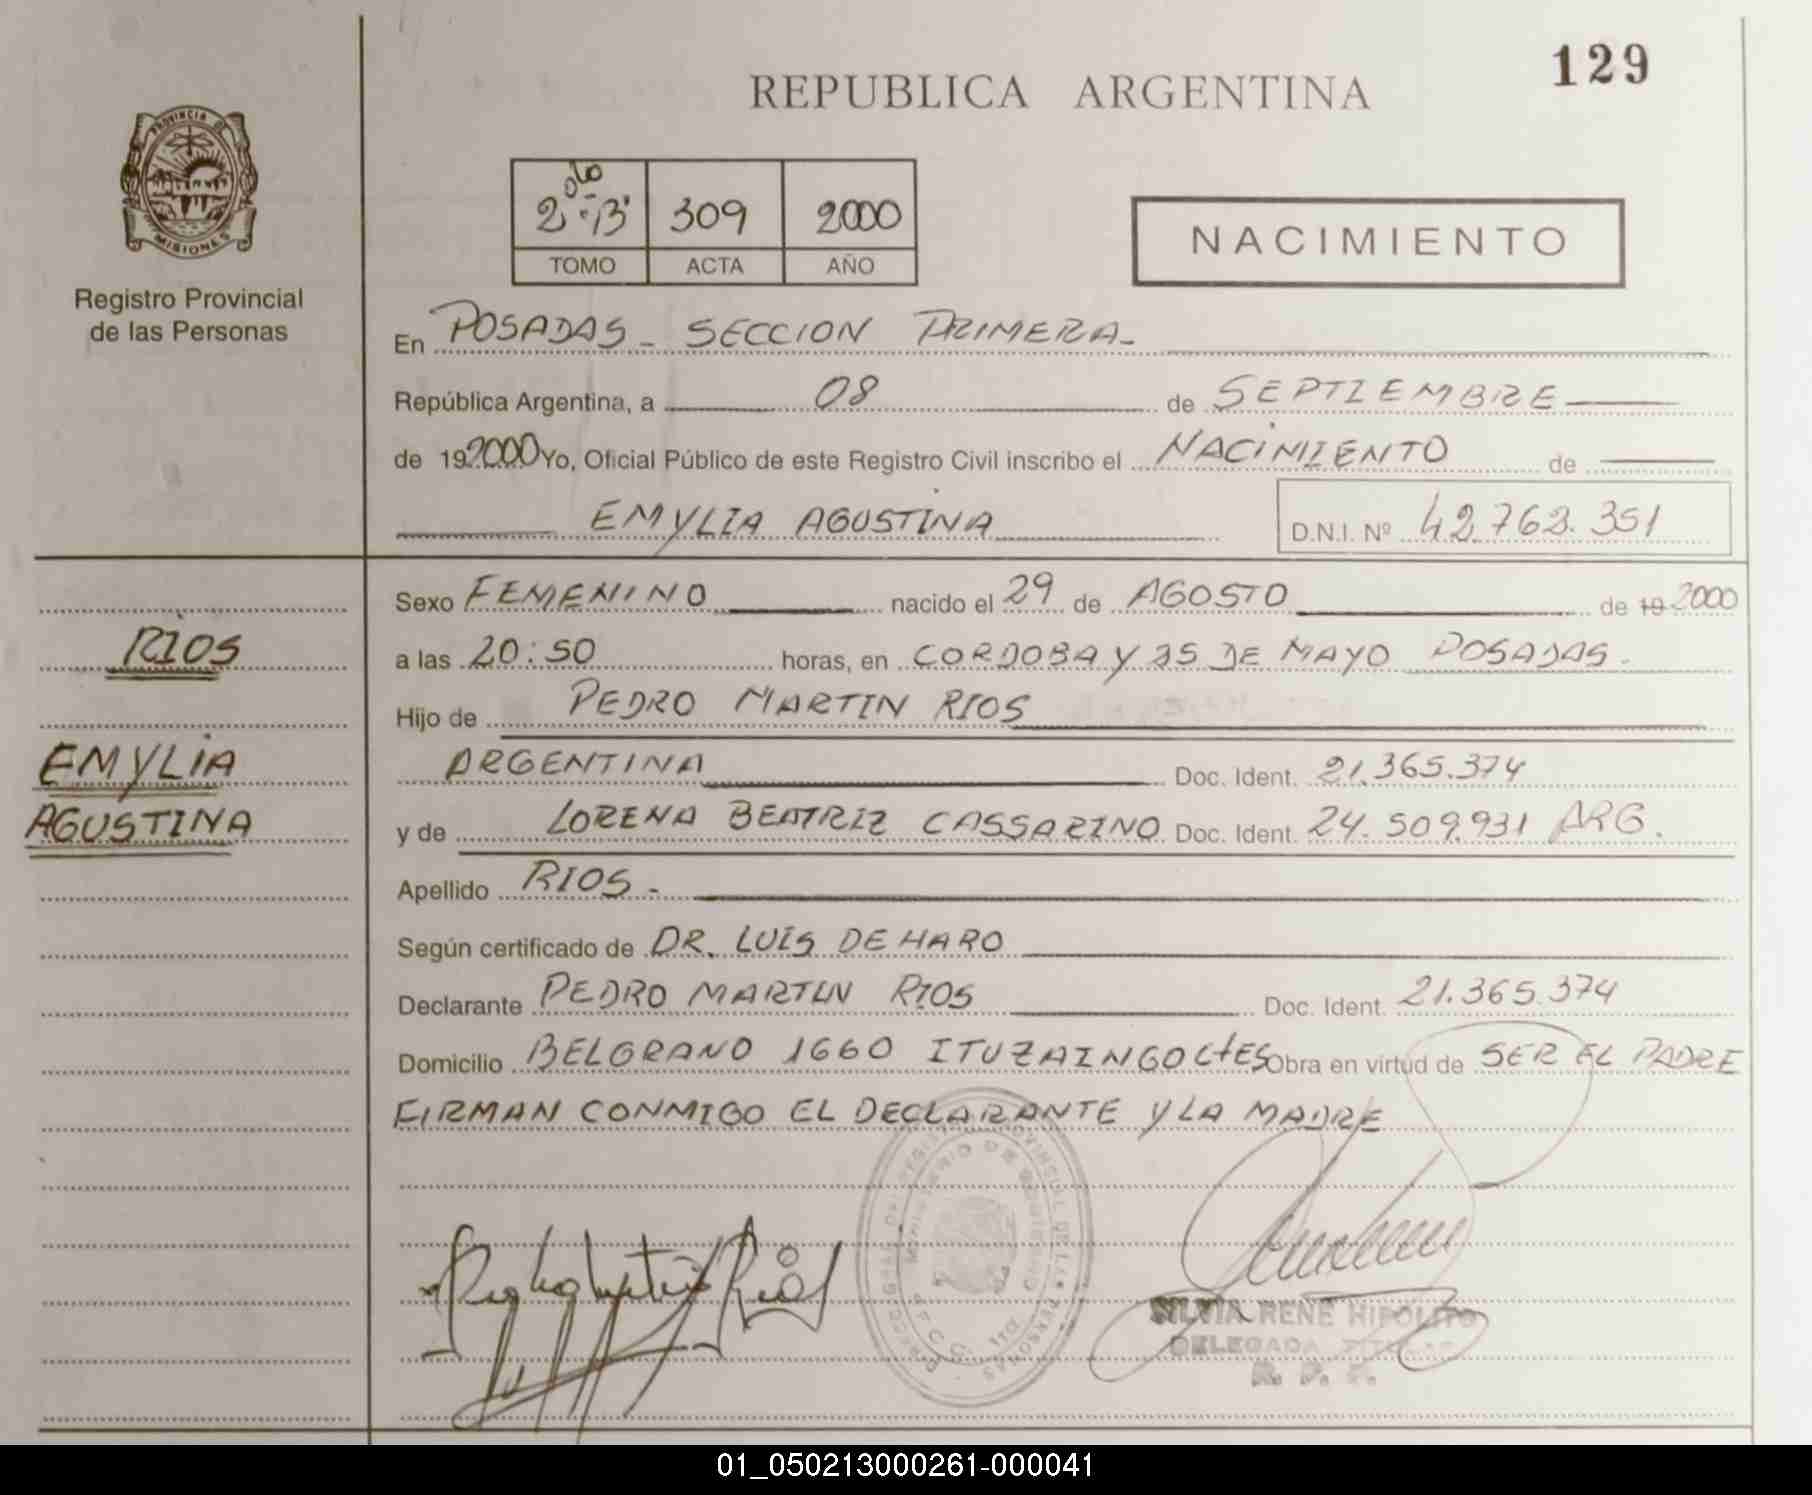 129
REPUBLICA ARGENTINA
PROVINCIA DE
MISIONES
Registro Provincial
de las Personas
2º "B" 309 2000
TOMO ACTA AÑO
NACIMIENTO
En POSADAS - SECCION PRIMERA -
República Argentina, a 08 de SEPTIEMBRE
de 19 2000 Yo, Oficial Público de este Registro Civil inscribo el NACIMIENTO de
EMYLIA AGUSTINA D.N.I. Nº 42.762.351
Sexo FEMENINO nacido el 29 de AGOSTO de 19 2000
RIOS
a las 20:50 horas, en CORDOBA Y 25 DE MAYO POSADAS.
Hijo de PEDRO MARTIN RIOS
EMYLIA
ARGENTINA Doc. Ident. 21.365.374
AGUSTINA
y de LORENA BEATRIZ CASSARINO Doc. Ident. 24.509.931 ARG.
Apellido RIOS -
Según certificado de DR. LUIS DE HARO
Declarante PEDRO MARTIN RIOS Doc. Ident. 21.365.374
Domicilio BELGRANO 1660 ITUZAINGO CtES Obra en virtud de SER EL PADRE
FIRMAN CONMIGO EL DECLARANTE Y LA MADRE
SILVIA RENE HIPOLITO
DELEGADA
R. P. P.
01_050213000261-000041